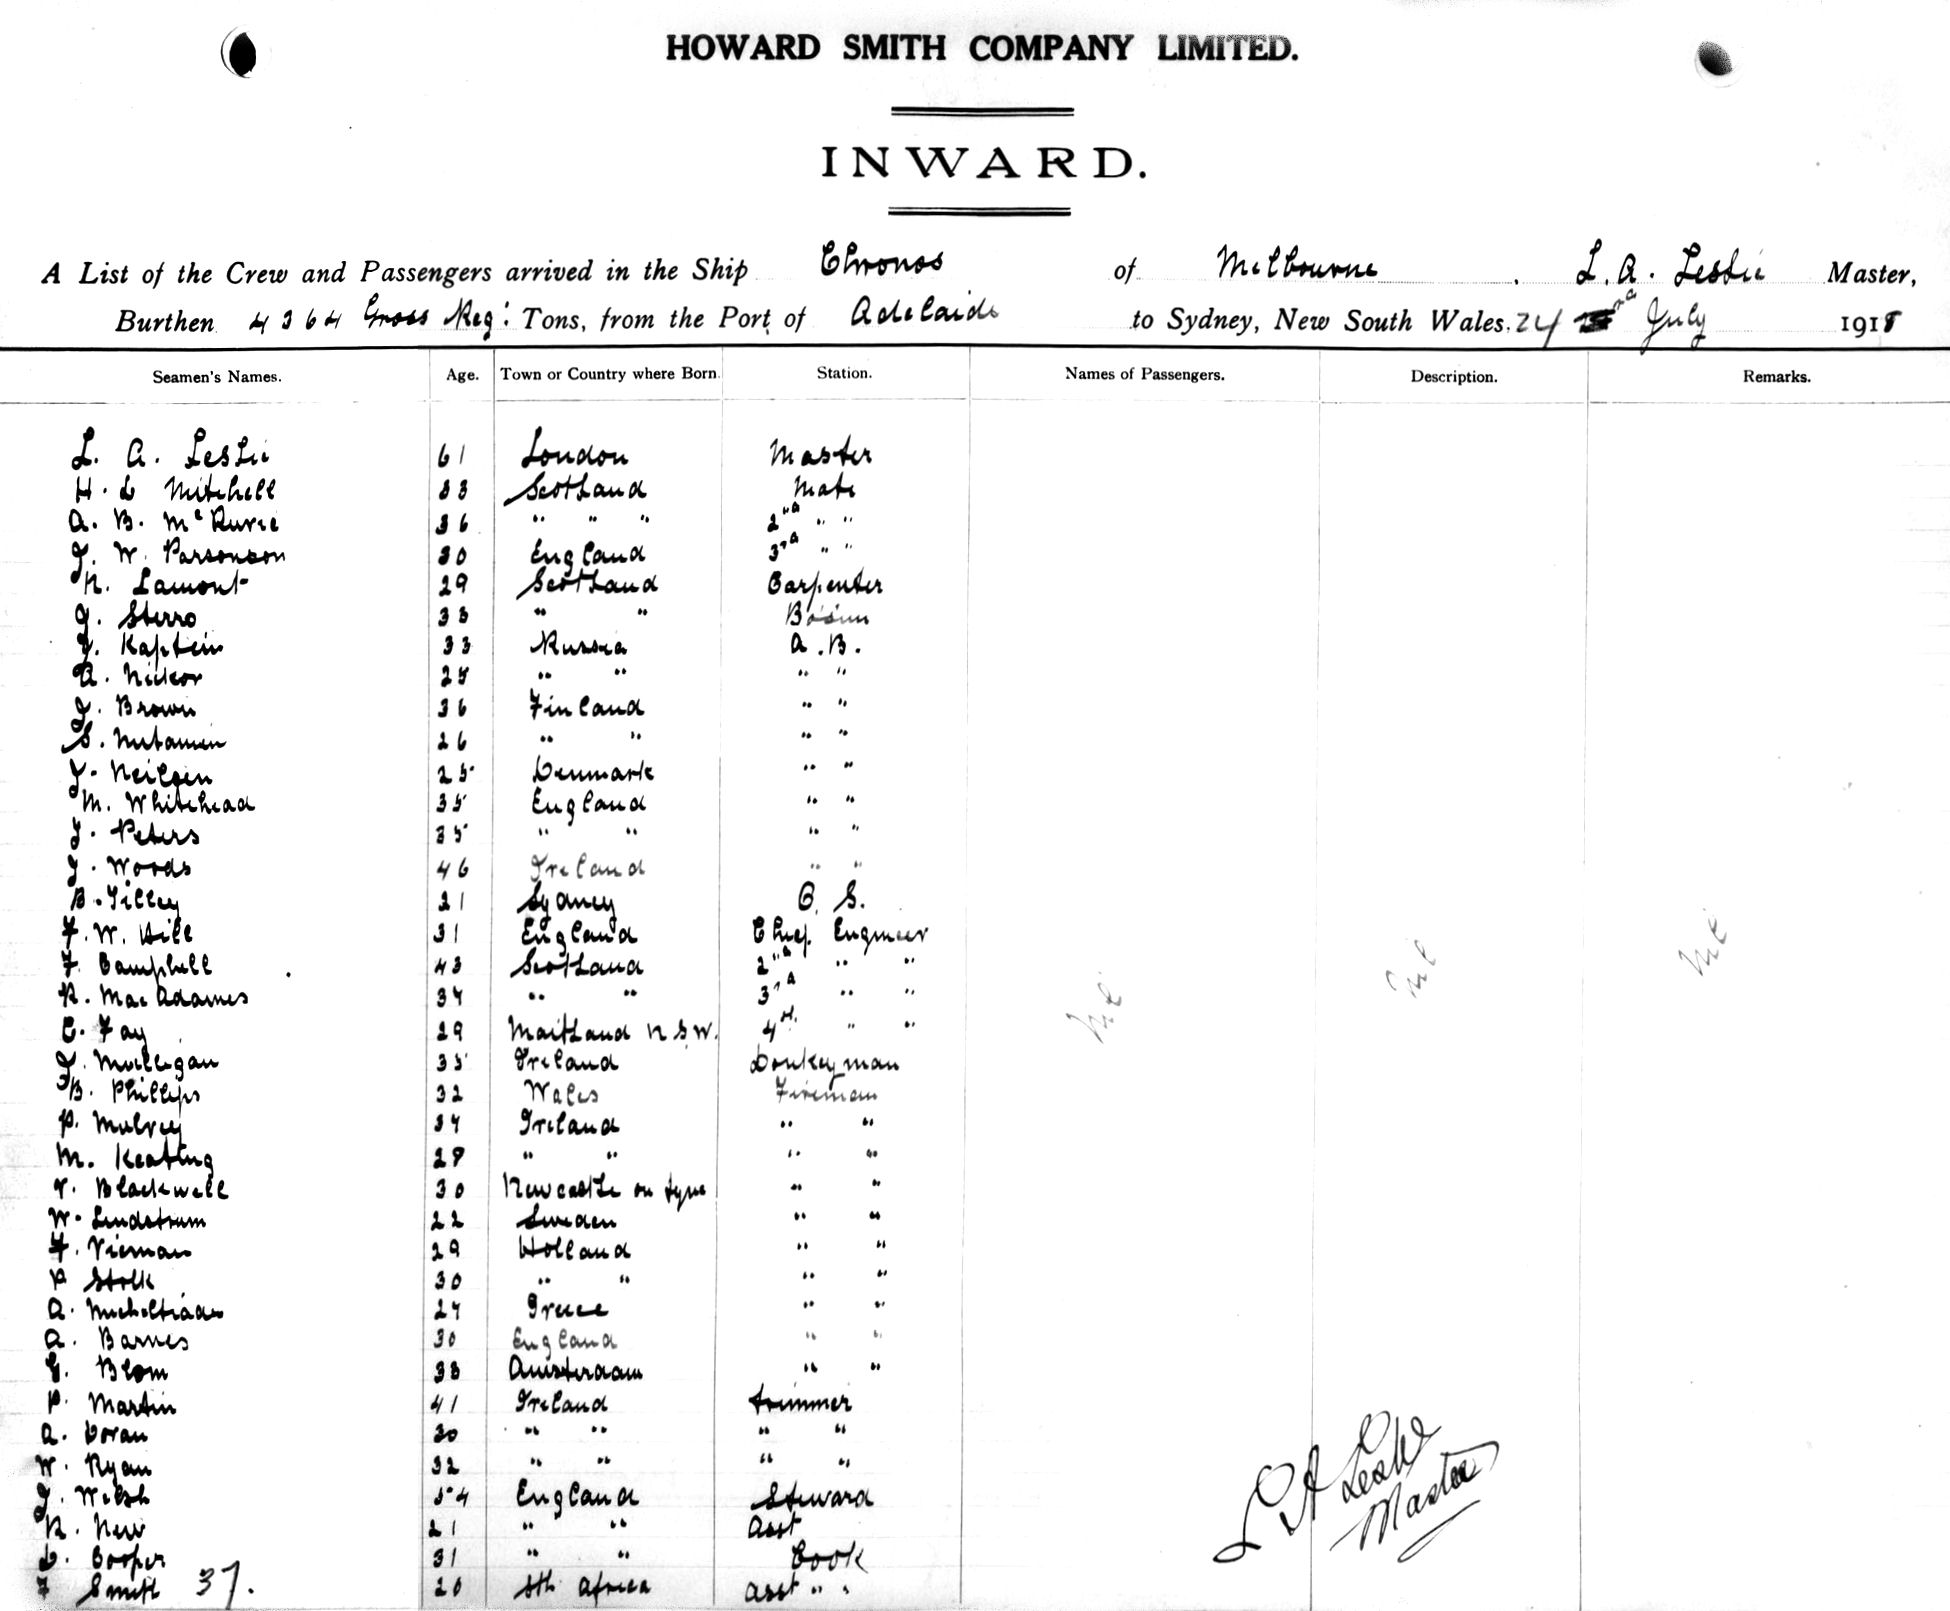 HOWARD SMITH COMPANY LIMITED.
INWARD.
A List of the Crew and Passengers arrived in the Ship Chronos of Melbourne. L. A. Leslie Master,
Burthen 4364 Gross Reg: Tons, from the Port of Adelaide to Sydney, New South Wales. 24 July 1918
Seamen's Names. Age. Town or Country where Born. Station. Names of Passengers. Description. Remarks.
L. A. Leslie 61 London Master
H. L Mitchell 33 Scotland Mate
A. B. McRurie 36 " " " 2nd " "
J. W. Parsonson 30 England 3rd " "
N. Lamont 29 Scotland Carpenter
J. Sterro 33 " " Bosun
J. Kaptein 33 Russia A.B.
A. Nickor 25 " " " "
J. Brown 36 Finland " "
S. 26 " " " "
J. Neilsen 25 Denmark " "
M. Whitehead 35 England " "
J. Peters 35 " " " "
J. Woods 46 Ireland " "
B. Tilley 21 Sydney O. S.
F. W. Hill 31 England Chief Engineer
F. Campbell 43 Scotland 2nd " "
R. MacAdames 34 " " 3rd " "
C. Fay 29 Maitland N.S.W. 4th " "
J. Mulligan 35 Ireland Donkeyman
B. Phillips 32 Wales Fireman
P. Mulvey 34 Ireland " "
M. Keating 29 " " " "
T. Blackwell 30 Newcastle on tyne " "
W. Lindstrum 22 Sweden " "
F. Vieman 29 Holland " "
P Stolk 30 " " " "
A. 27 Greece " "
A. Barnes 30 England " "
G. Blom 38 Amsterdam " "
P. Martin 41 Ireland trimmer
A. Doran 30 " " " "
W. Ryan 32 " " " "
J. Welsh 54 England Steward
R. New 21 " " Asst
D. Cooper 31 " " Cook
F Smith 37. 20 Sth Africa Asst " "
Nil Nil Nil
L A Leslie
Master